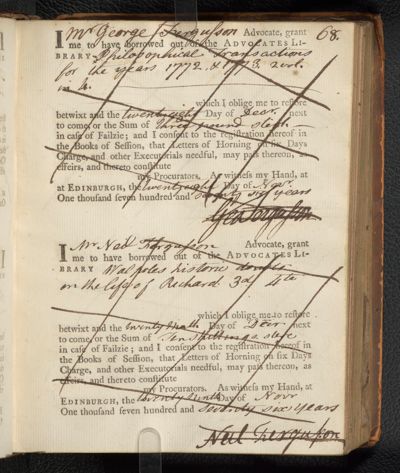 68.
I Mr George Fergusson Advocate, grant
me to have borrowed out of the ADVOCATES LI-
BRARY Philosophical Transactions
for the years 1772. & 1773. 2 vol.
in 4.
which I oblige me to reſtore
betwixt and the twenty eight Day of Decr. next
to come, or the Sum of three pound sterl.
in caſe of Failzie; and I conſent to the regiſtration hereof in
the Books of Seſſion, that Letters of Horning on ſix Days
Charge, and other Executorials needful, may paſs thereon, as
effeirs, and thereto conſtitute
my Procurators. As witneſs my Hand, at
at EDINBURGH, the twenty eight Day of Novr.
One thouſand ſeven hundred and seventy six years
Geo Fergusson
I Mr Neil Fergusson Advocate, grant
me to have borrowed out of the ADVOCATES LI-
BRARY Walpoles historic doubts
on the life of Richard 3d. 4to
which I oblige me to reſtore
betwixt and the twenty Ninth Day of Decr. next
to come, or the Sum of Ten Shillings ster
in caſe of Failzie; and I conſent to the regiſtration hereof in
the Books of Seſſion, that Letters of Horning on ſix Days
Charge, and other Executorials needful, may paſs thereon, as
effeirs, and thereto conſtitute
my Procurators. As witneſs my Hand, at
EDINBURGH, the twenty Ninth Day of Novr
One thouſand ſeven hundred and seventy six years
Neil Fergusson